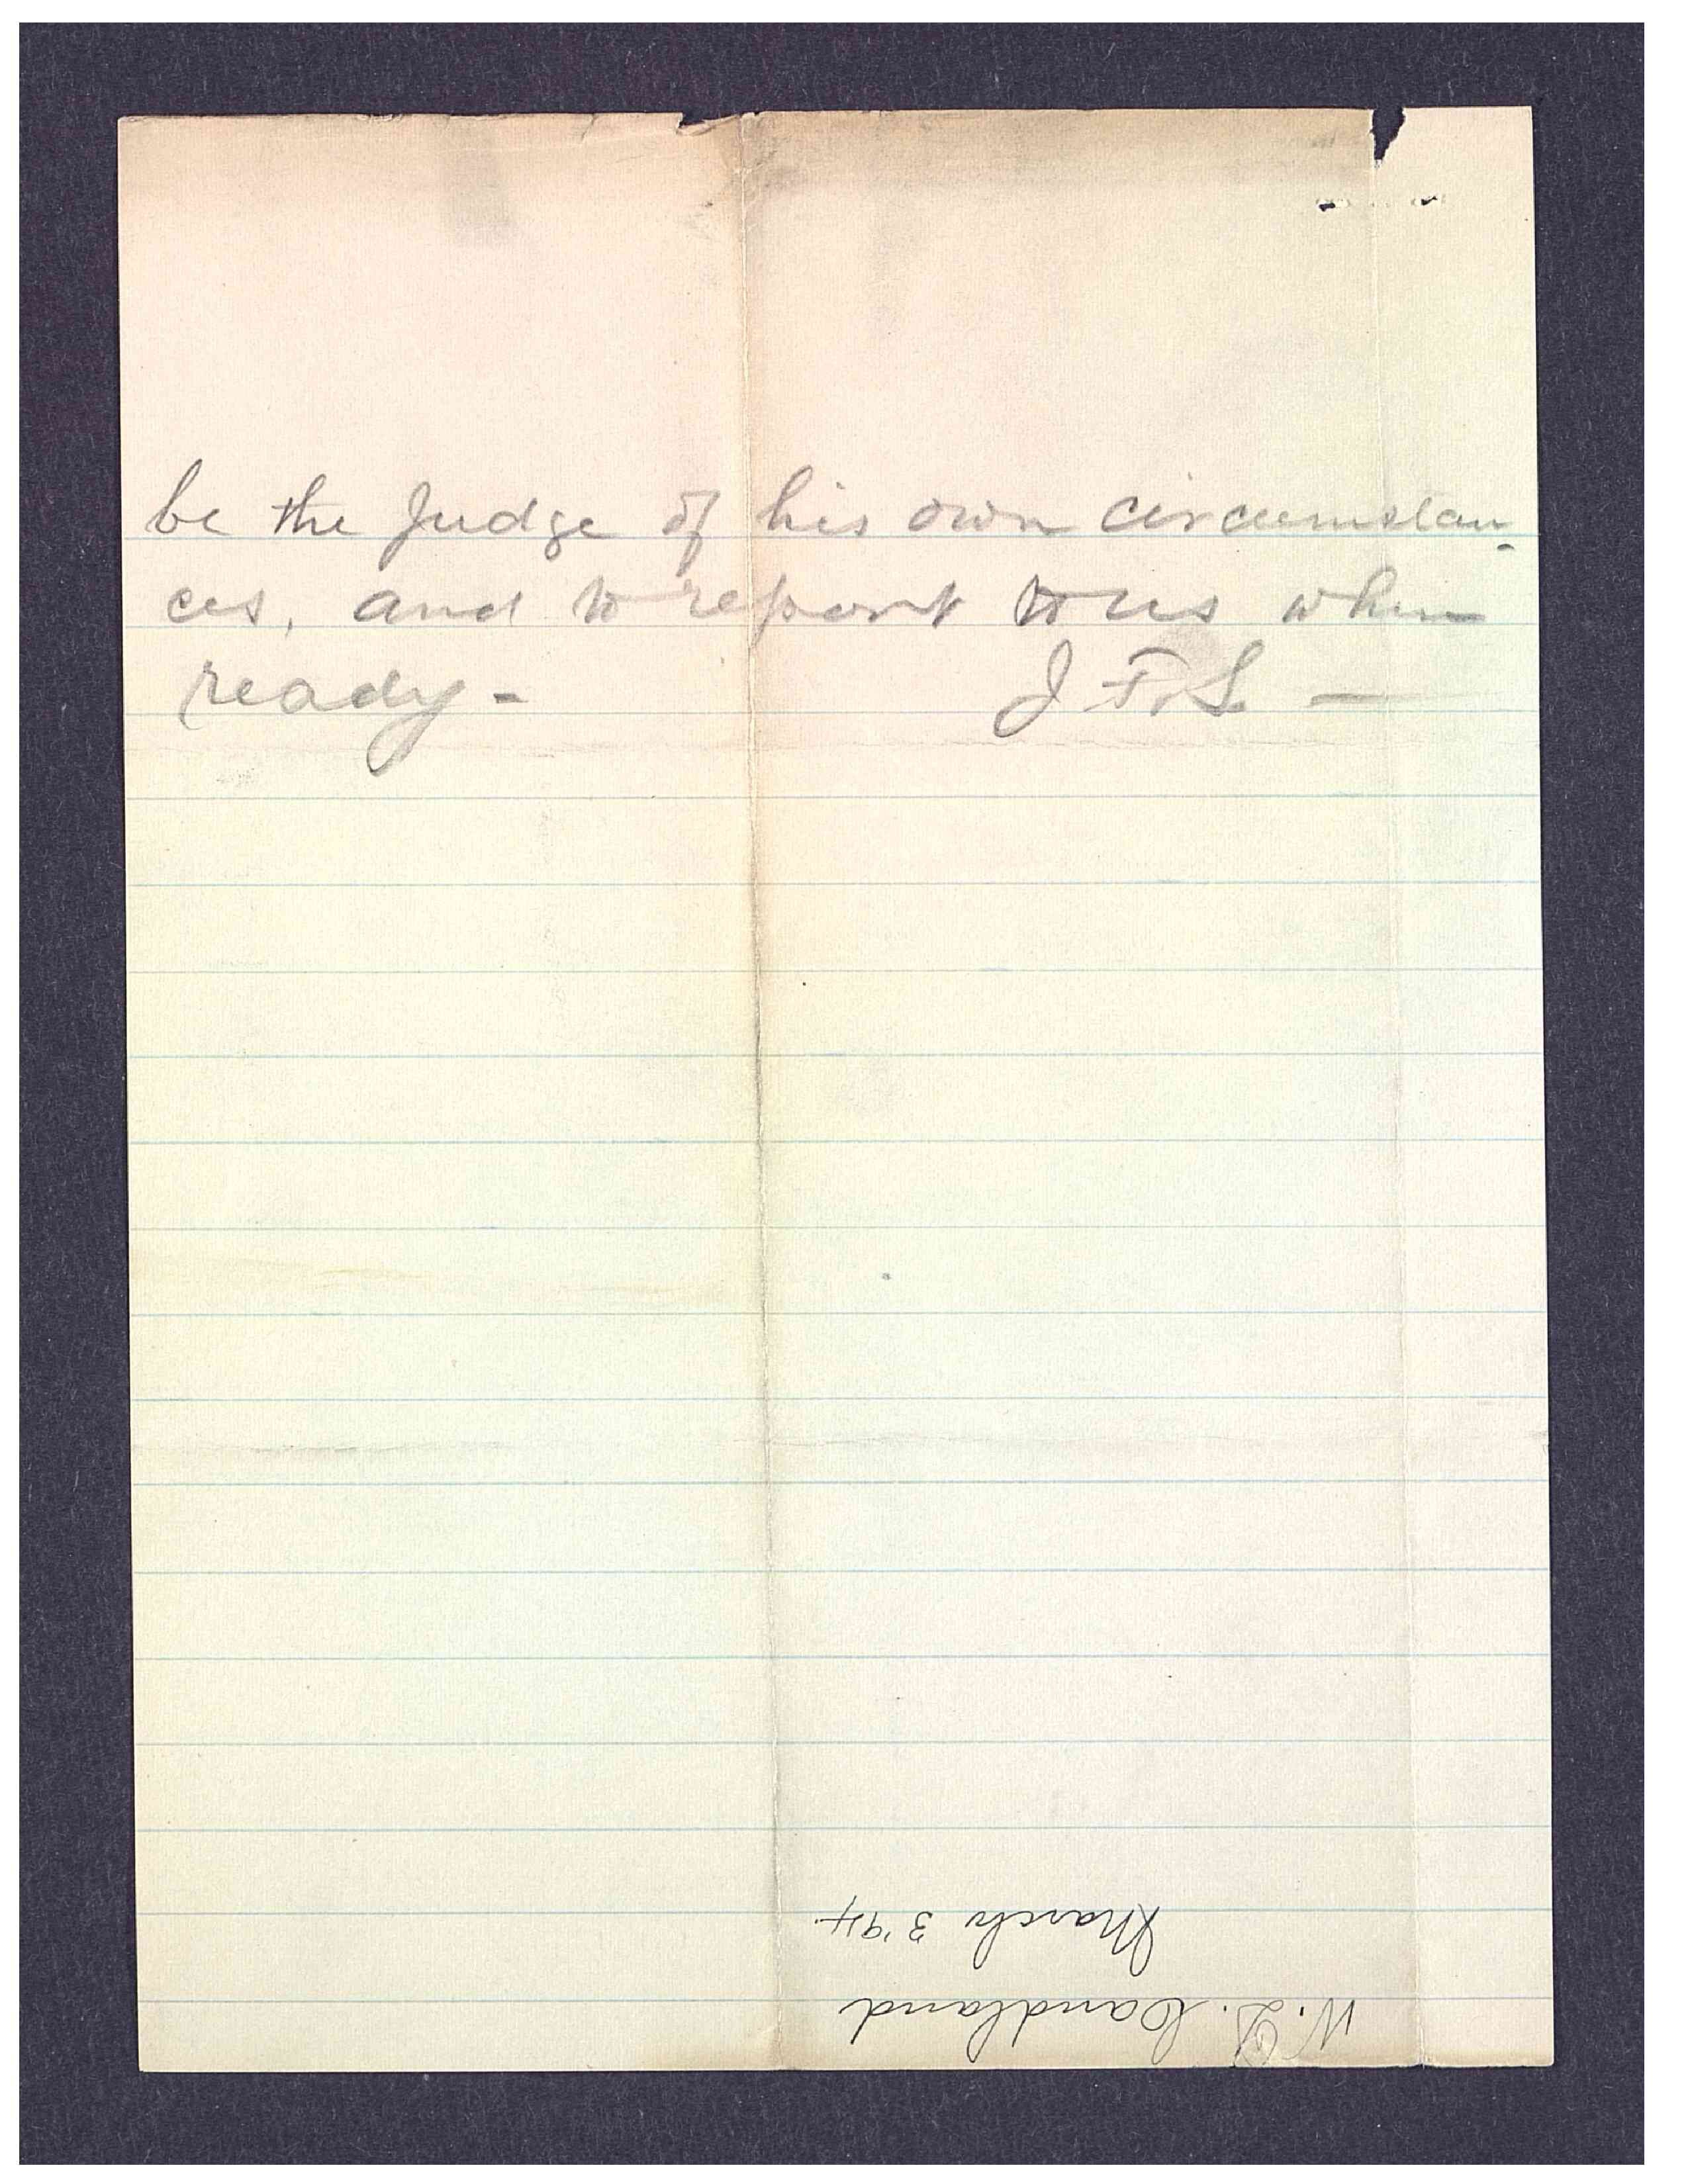 be the Judge of his own circumstan-
ces, and to report to us when
ready - J. F. S. —
W. D. Candland
March 3 '94.